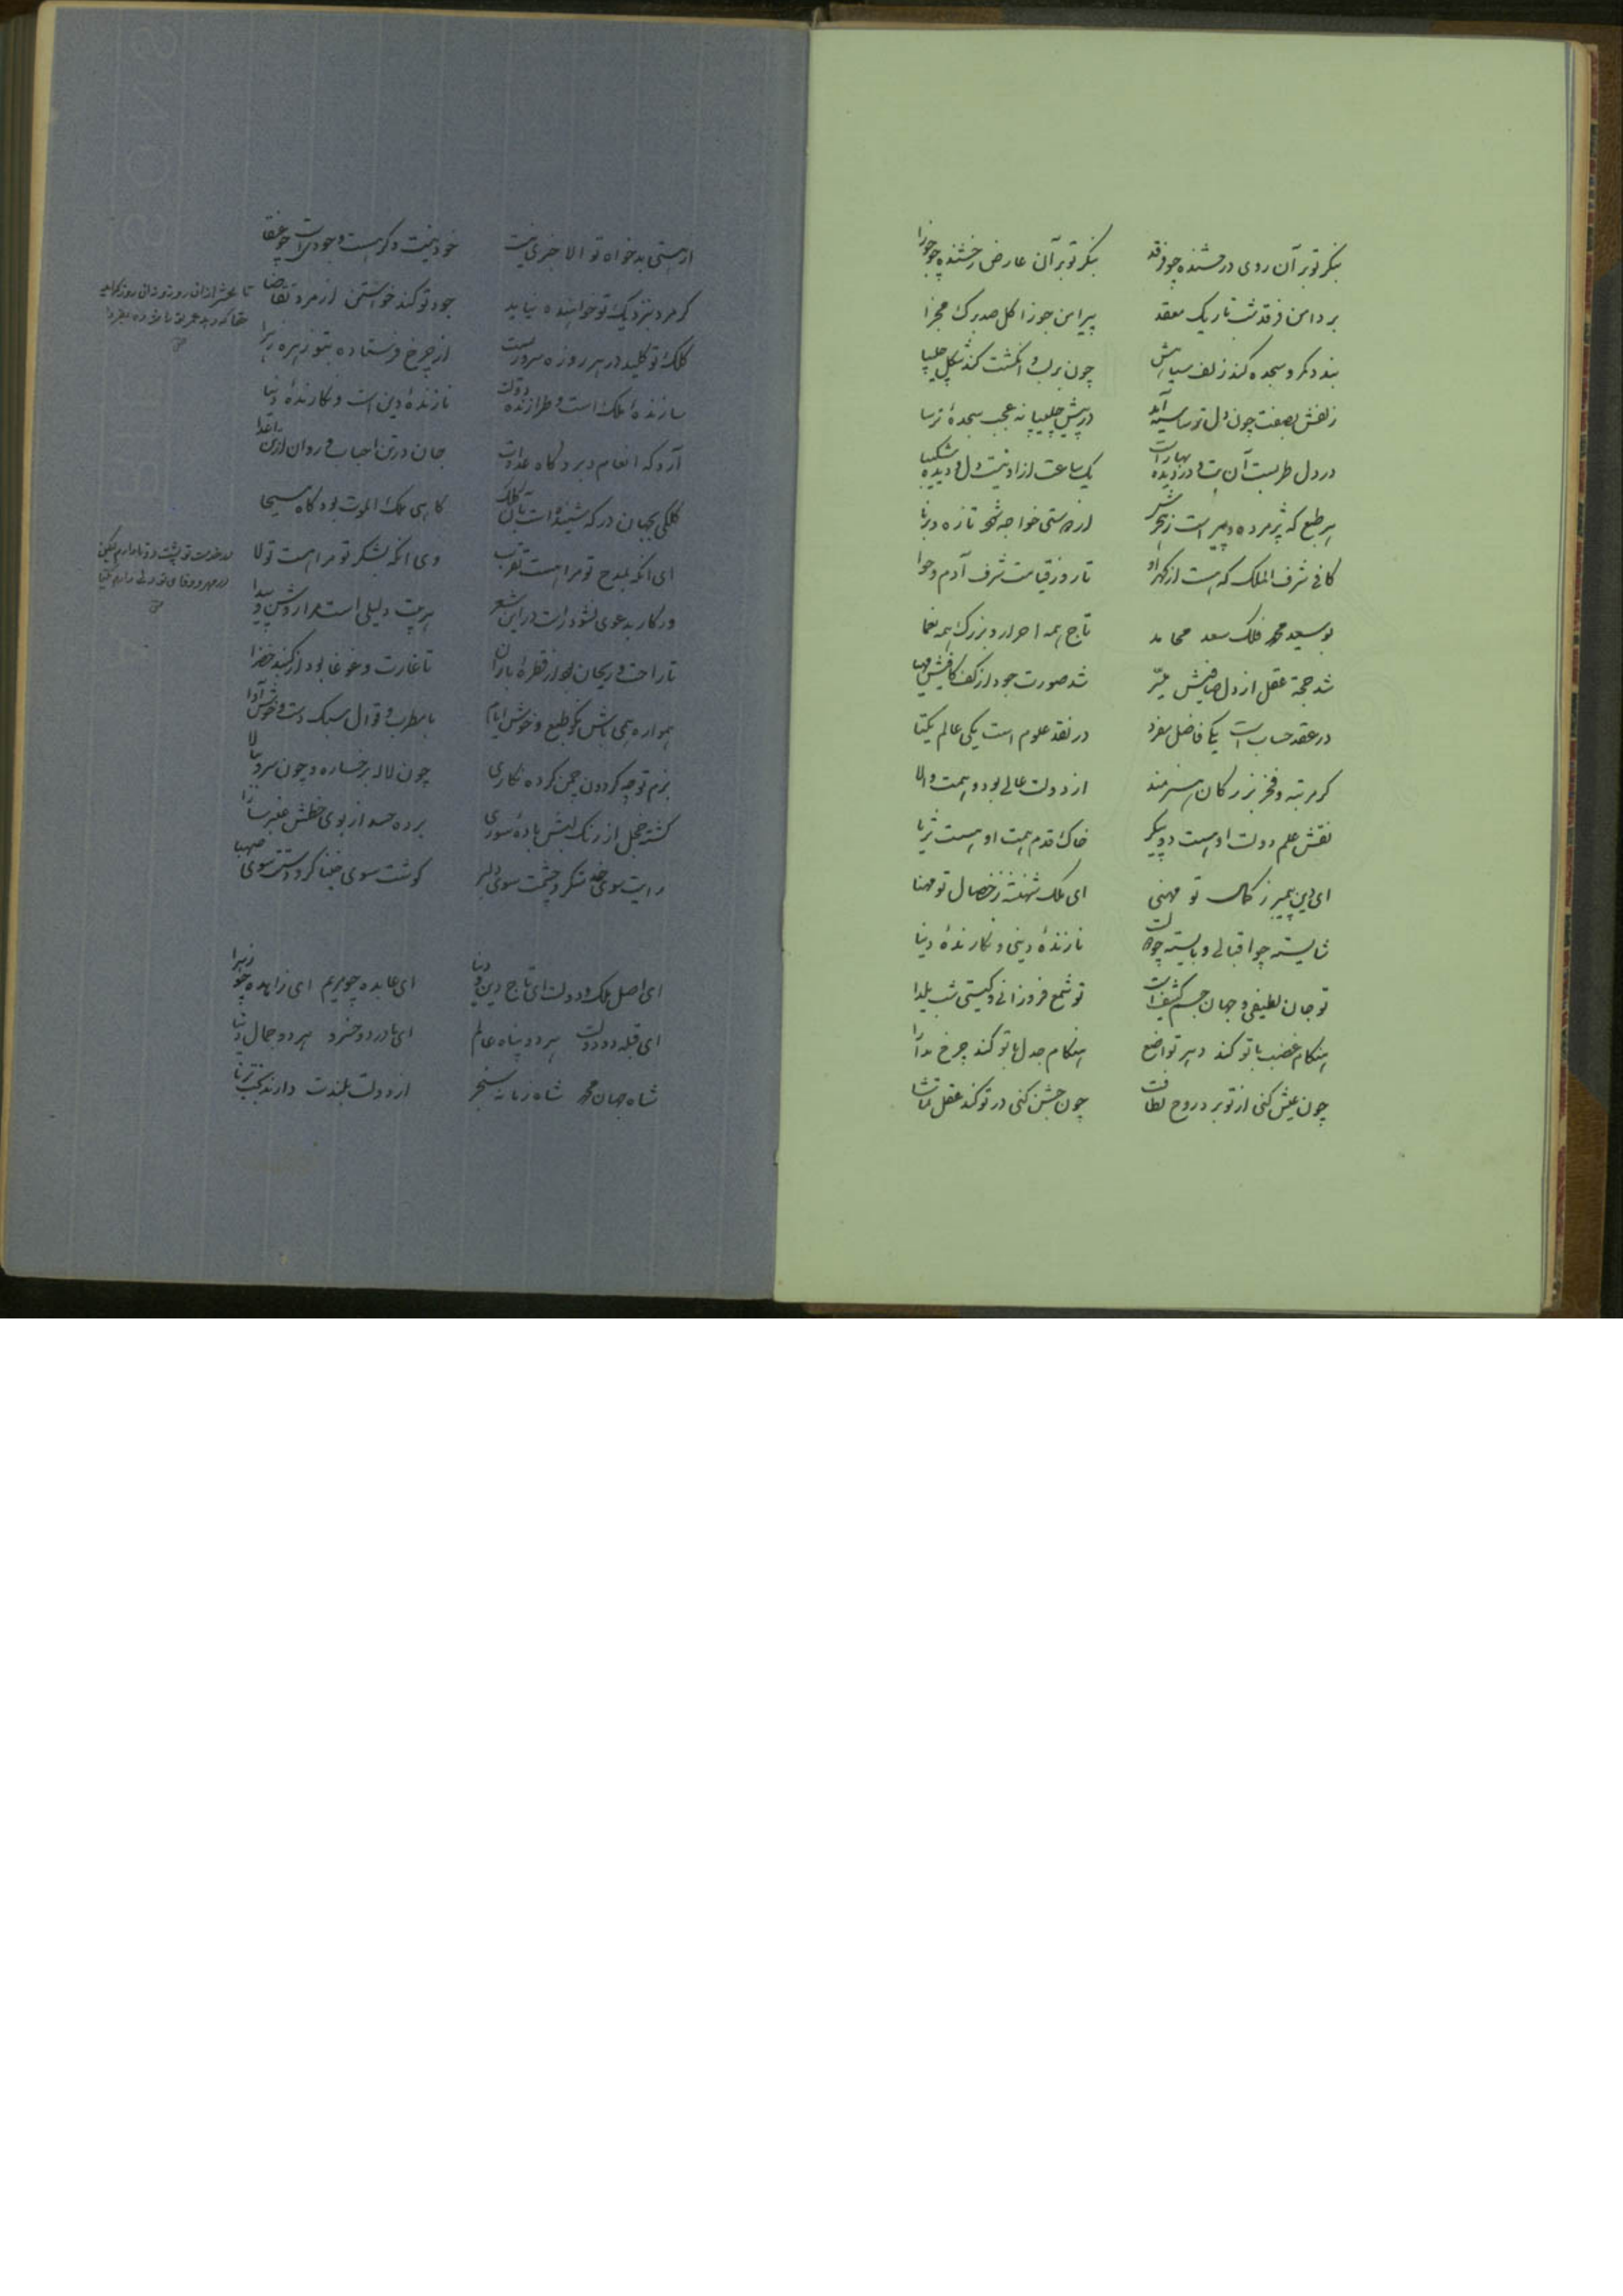 بنگر تو بر آن روی درخشنده چو فرقد بنگر تو بر آن عارض رخشنده چو جوزا
بر دامن فرقد شب تاریک معقد پیرامن جوزا گل صدبرگ مجزا
بندد کمر و سجده کند زلف سیاهش چون بر لب و انگشت کند شکل چلیپا
زلفش بصفت چون دل ترسا سیه آمد در پیش چلیپا نه عجب سجدهٔ ترسا
در دل طربست آن بت و در دیده بهارست یک ساعت ازو نیست دل و دیده شکیبا
هر طبع که پژمرده و پیر است ز هجرش از مدحتی خواجه شود تازه و برنا
کافی شرف الملک که هست از گهر او تا روز قیامت شرف آدم و حوا
بوسعد محمد فلک سعد محامد تاج همه احرار و بزرگ همه نعما
شد حجة عقل از دل صافیش شد صورت جود از کف کافیش مهیا
در عقد حساب است یکی فاضل مفرد در نقد علوم است یکی عالم یکتا
گر مرتبه و فخر بزرگان هنرمند از دولت عالی بود و همت والا
نقش علم دولت او هست دو پیکر خاک قدم همت او هست ثریا
ای دین پیمبر ز کمال تو مهنی ای ملک شهنشه ز خصال تو مهنا
شایسته چو اقبالی و بایسته چو دولت نازندهٔ دینی و نگارندهٔ دنیا
تو جان لطیفی و جهان جسم کثیفست تو شمع فروزانی و گیتی شب یلدا
هنگام غضب با تو کند دهر تواضع هنگام جدل با تو کند چرخ مدارا
چون عیش کنی از تو برد روح لطافت چون جشن کنی در تو کند عقل تماشا
از هستی بدخواه تو الا خبری نیست خود نیست وگر هست وجودیست چو عنقا
گر مرد نزدیک تو خواهنده نیاید جود تو کند خواستن از مرد تقاضا
کلک تو کلید در هر روزه سروریست از چرخ فرستاده بتو زهرهٔ زهرا
سازندهٔ ملک است و طرازندهٔ دولت نازندهٔ دین است و نگارندهٔ دنیا
آرد که انعام و برد گاه عداوت جان در تن احباب و روان از تن اعدا
کلکی بجهان در که شنیده است بدان کلک گاهی ملک الموت بود گاه مسیحا
ای آنکه بمدح تو مرا هست تقرب وی آنکه بشکر تو مرا هست تولا
ور کار بدعوی شود راست در این شعر هر بیت دلیلی است مرا روشن و پیدا
تا راحت و ریحان بود از قطرهٔ باران تا غارت و غوغا بود از گنبد خضرا
همواره همی باش نکو طبع و خوش ایام با مطرب و قوال سبک دست و خوش آوا
بزم تو چو گردون چمن کرده نگاری چون لاله برخساره و چون سرو ببالا
گشته خجل از رنگ لبش بادهٔ سوری برده حسد از بوی خطش عنبر سارا
رایت سوی خد شکر و چشمت سوی دلبر گوشت سوی چنگ و دستت سوی صهبا
ای اصل ملک و دولت ای تاج دین و دنیا ای عابده چو مریم ای زاهده چو زهرا
ای قبله دو دولت هر دو پناه عالم ای مادر دو خسرو هر دو جمال دنیا
شاه جهان محمد شاه زمانه سنجر از دولت بلندت دارند تخت
در خدمت تو پشت دوتا دارم لیکن